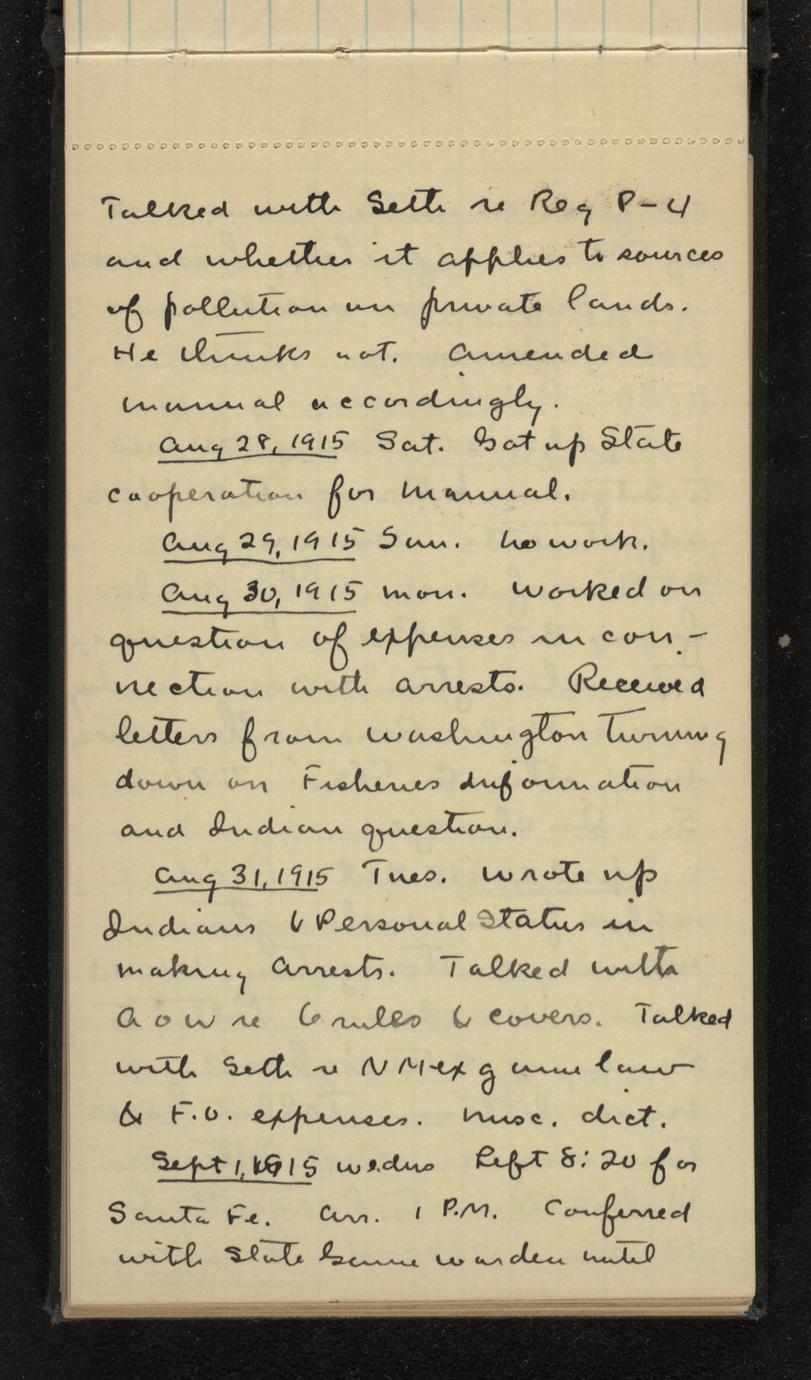 Talked with Seth re Reg P-4
and whether it applies to sources
of pollution on private lands.
He thinks not. Amended
manual accordingly.
Aug 28, 1915 Sat. Got up State
cooperation for manual.
Aug 29, 1915 Sun. No work.
Aug 30, 1915 Mon. Worked on
question of expenses in con-
nection with arrests. Received
letters from Washington turning
down on Fisheries information
and Indian question.
Aug 31, 1915 Tues. Wrote up
Indians & Personal Status in
making arrests. Talked with
A O W re G rules & covers. Talked
with Seth re N Mex game law
& F.O. expenses. Misc. dict.
Sept 1, 1915 Wednes Left 8:20 for
Santa Fe. Arr. 1 P.M. Conferred
with State Game Warden until